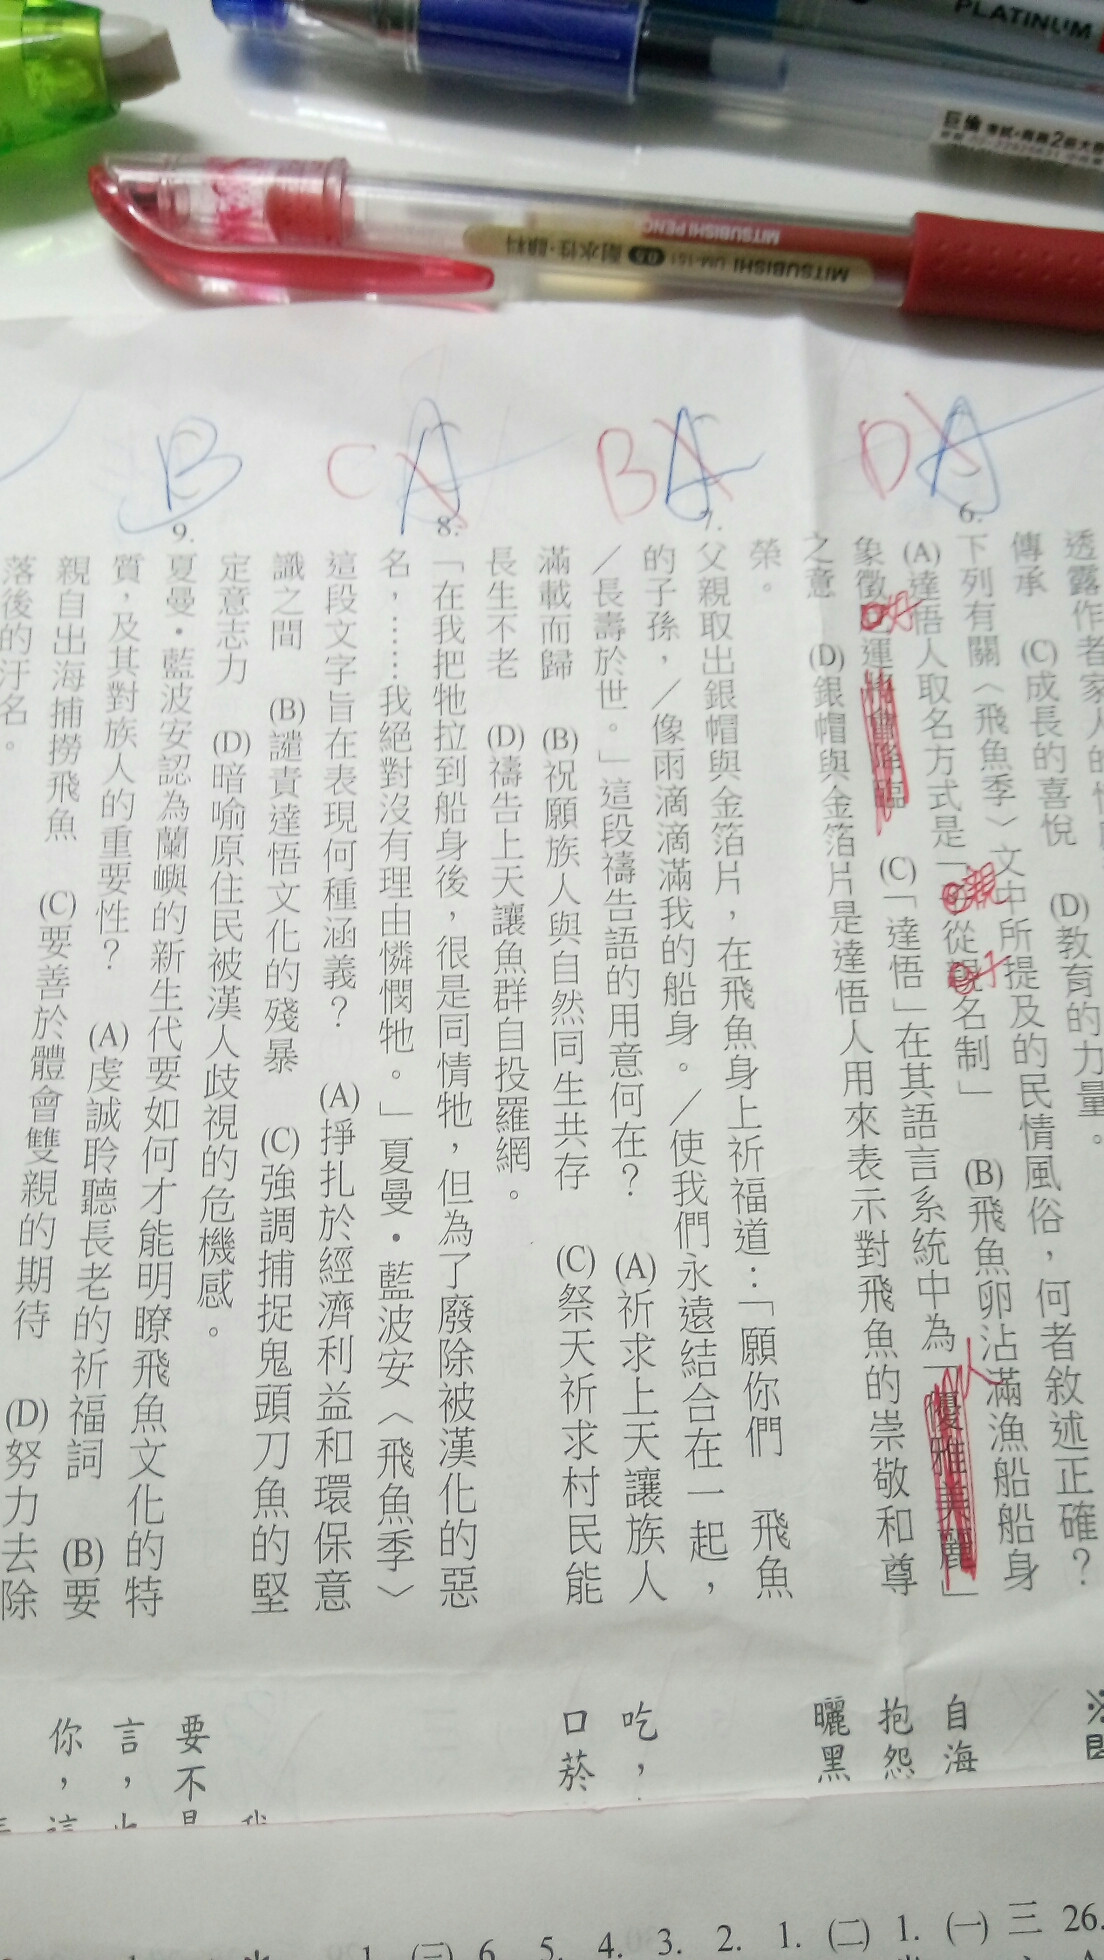 PLATINUM
MITSUBISHI PENC
MITSUBISHI UM-151 0.5 耐水性·顔料
A
D
A
B
A
C
B
透露作者家人的
傳承 (C)成長的喜悅 (D)教育的力量。
6.
下列有關〈飛魚季〉文中所提及的民情風俗，何者敘述正確？
(A)達悟人取名方式是「 從 名制」 (B)飛魚卵沾滿漁船船身
象徵 運 臨 (C)「達悟」在其語言系統中為「優雅美麗」
人
之意 (D)銀帽與金箔片是達悟人用來表示對飛魚的崇敬和尊
榮。
7.
父親取出銀帽與金箔片，在飛魚身上祈福道：「願你們 飛魚
的子孫，／像雨滴滴滿我的船身。／使我們永遠結合在一起，
／長壽於世。」這段禱告語的用意何在？ (A)祈求上天讓族人
滿載而歸 (B)祝願族人與自然同生共存 (C)祭天祈求村民能
長生不老 (D)禱告上天讓魚群自投羅網。
8.
「在我把牠拉到船身後，很是同情牠，但為了廢除被漢化的惡
名，……我絕對沒有理由憐憫牠。」夏曼·藍波安〈飛魚季〉
這段文字旨在表現何種涵義？ (A)掙扎於經濟利益和環保意
識之間 (B)譴責達悟文化的殘暴 (C)強調捕捉鬼頭刀魚的堅
定意志力 (D)暗喻原住民被漢人歧視的危機感。
9.
夏曼·藍波安認為蘭嶼的新生代要如何才能明瞭飛魚文化的特
質，及其對族人的重要性？ (A)虔誠聆聽長老的祈福詞 (B)要
親自出海捕撈飛魚 (C)要善於體會雙親的期待 (D)努力去除
落後的汙名。
自海
抱怨
曬黑
吃，
口菸
要不是
言，
你，這
26.
三
(一)
1.
(二)
1.
2.
3.
4.
5.
6.
(三)
1.